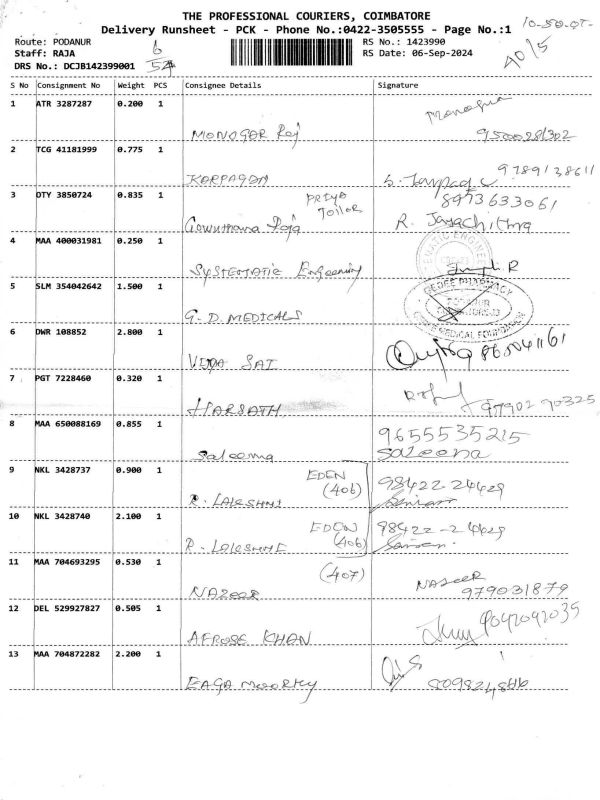 THE PROFESSIONAL COURIERS, COIMBATORE
Delivery Runsheet - PCK - Phone No.:0422-3505555 - Page No.:1
Route: PODANUR RS No.: 1423990
Staff: RAJA RS Date: 06-Sep-2024
DRS No.: DCJB142399001
40/5
S No Consignment No Weight PCS Consignee Details Signature
1 ATR 3287287 0.200 1
MONOGAR Raj
2 TCG 41181999 0.775 1
KARPAGAM
3 OTY 3850724 0.835 1 PRIYA
Tailor 8973633061
Gowuthama Raja R. Jayachithra
4 MAA 400031981 0.250 1
Systematic Engeeniry
5 SLM 354042642 1.500 1
GEDEE PHARMACY
G.D. MEDICALS
6 DWR 108852 2.800 1
VIJAA SAI
7 PGT 7228460 0.320 1
97902 90325
HARSATH
8 MAA 650088169 0.855 1 9655535215
Saleema Saleena
9 NKL 3428737 0.900 1 EDEN
(406) 98422-24429
R. LAKSHMI
10 NKL 3428740 2.100 1 EDEN 98422-24429
(406)
R. LAKSHME
11 MAA 704693295 0.530 1 (407)
NAZEER
NAZEER 979031879
12 DEL 529927827 0.505 1
9042092039
AFROSE KHAN
13 MAA 704872282 2.200 1
EAGA MOORTHY